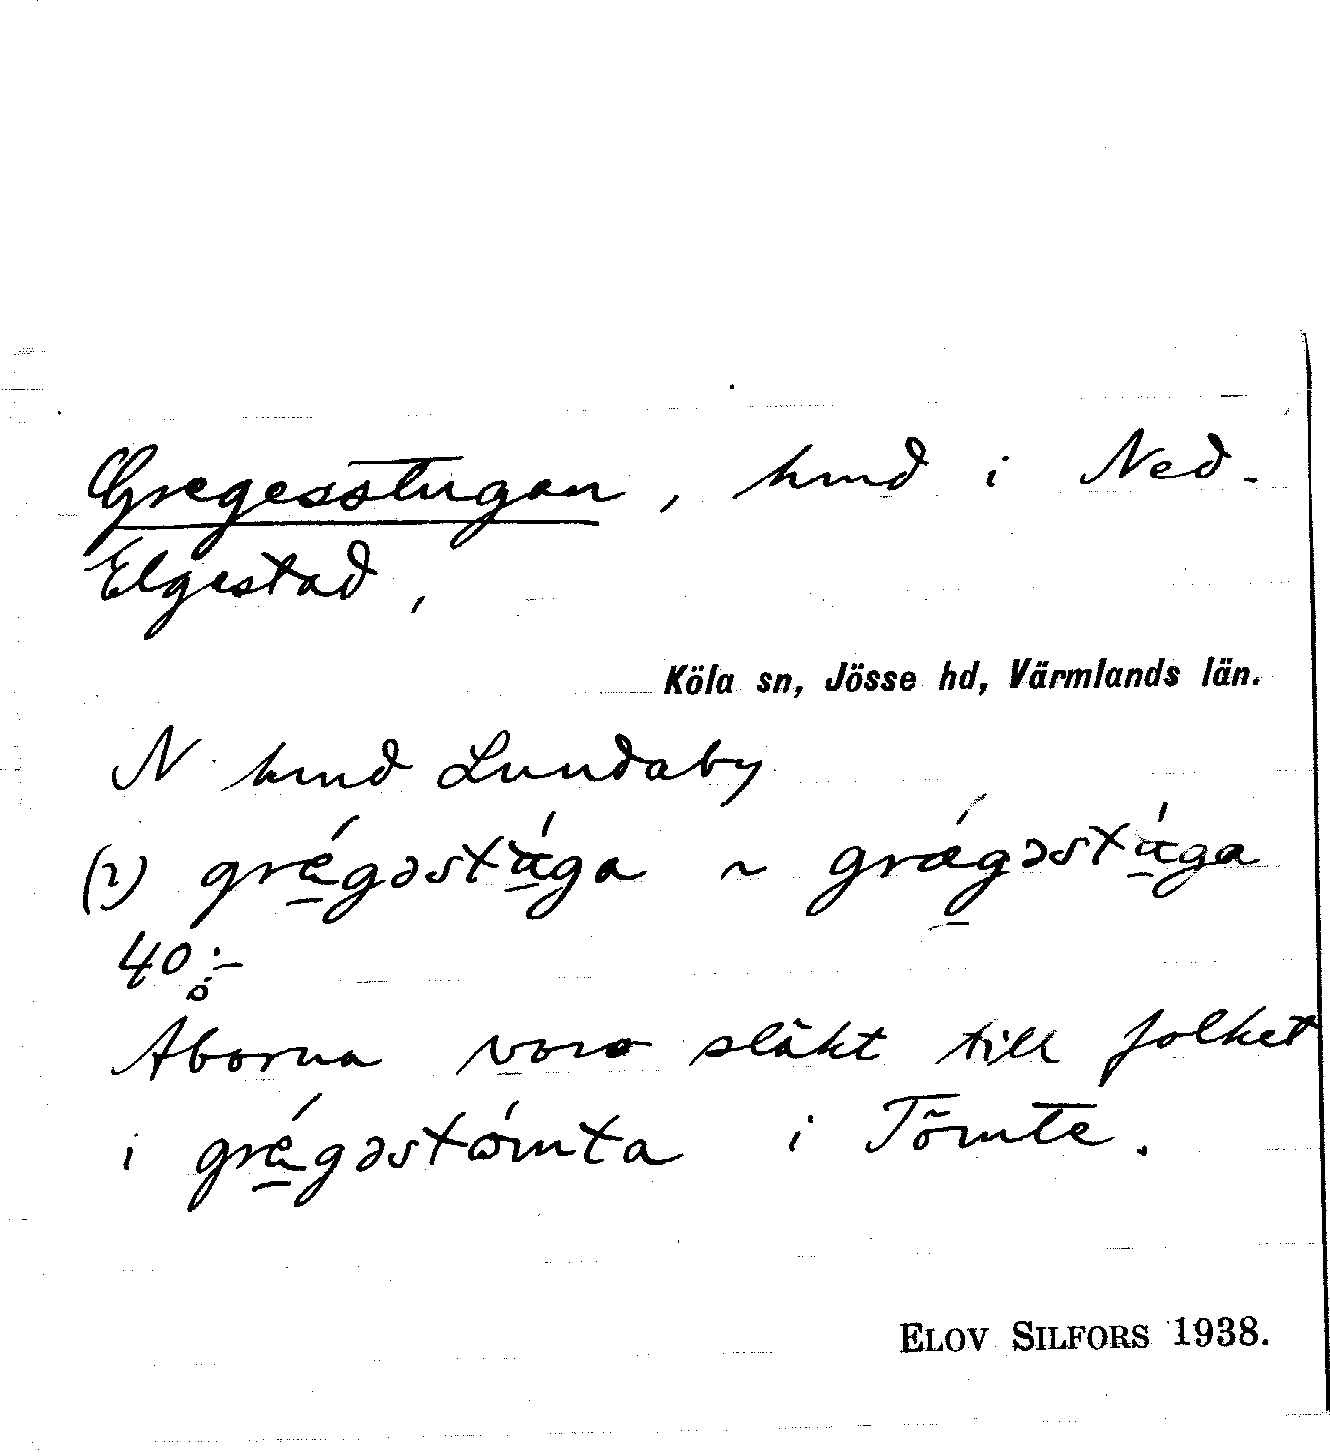 Gregesstugan, hmd i Ned-
Elgestad,
Köla sn, Jösse hd, Värmlands län.
N hmd Lundaby
(2) grégəstága ~ grǽgəstága
40:-
Åborna voro släkt till folket
i grégəstómta i Tömte.
ELOV SILFORS 1938.